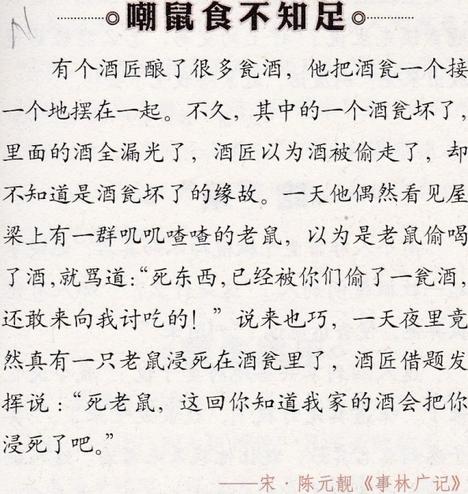 嘲鼠食不知足
有个酒匠酿了很多瓮酒，他把酒瓮一个接
一个地摆在一起。不久，其中的一个酒瓮坏了，
里面的酒全漏光了，酒匠以为酒被偷走了，却
不知道是酒瓮坏了的缘故。一天他偶然看见屋
梁上有一群叽叽喳喳的老鼠，以为是老鼠偷喝
了酒，就骂道：“死东西，已经被你们偷了一瓮酒，
还敢来向我讨吃的！”说来也巧，一天夜里竟
然真有一只老鼠浸死在酒瓮里了，酒匠借题发
挥说：“死老鼠，这回你知道我家的酒会把你
浸死了吧。”
——宋·陈元靓《事林广记》